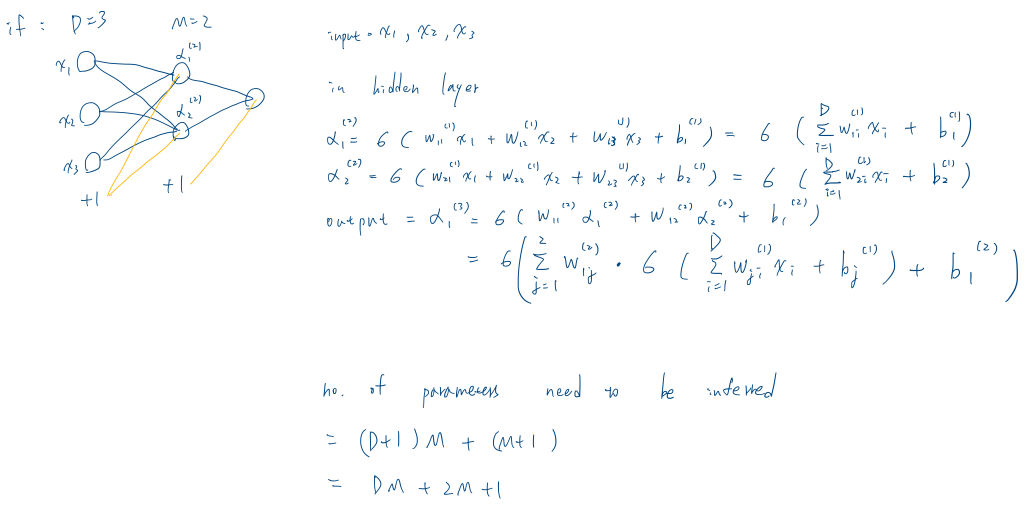 if : D=3 M=2
x₁
x₂
x₃
α₁⁽²⁾
α₂⁽²⁾
+1
+1
input = x₁ , x₂ , x₃
in hidden layer
α₁⁽²⁾ = б ( w₁₁⁽¹⁾x₁ + w₁₂⁽¹⁾x₂ + w₁₃⁽¹⁾x₃ + b₁⁽¹⁾ ) = б ( ∑ᵢ₌₁ᴰ w₁ᵢ⁽¹⁾ xᵢ + b₁⁽¹⁾ )
α₂⁽²⁾ = б ( w₂₁⁽¹⁾x₁ + w₂₂⁽¹⁾x₂ + w₂₃⁽¹⁾x₃ + b₂⁽¹⁾ ) = б ( ∑ᵢ₌₁ᴰ w₂ᵢ⁽¹⁾ xᵢ + b₂⁽¹⁾ )
output = α₁⁽³⁾ = б ( w₁₁⁽²⁾ α₁⁽²⁾ + w₁₂⁽²⁾ α₂⁽²⁾ + b₁⁽²⁾ )
= б ( ∑ⱼ₌₁² w₁ⱼ⁽²⁾ · б ( ∑ᵢ₌₁ᴰ wⱼᵢ⁽¹⁾ xᵢ + bⱼ⁽¹⁾ ) + b₁⁽²⁾ )
no. of parameters need to be inferred
= (D+1)M + (M+1)
= DM + 2M+1